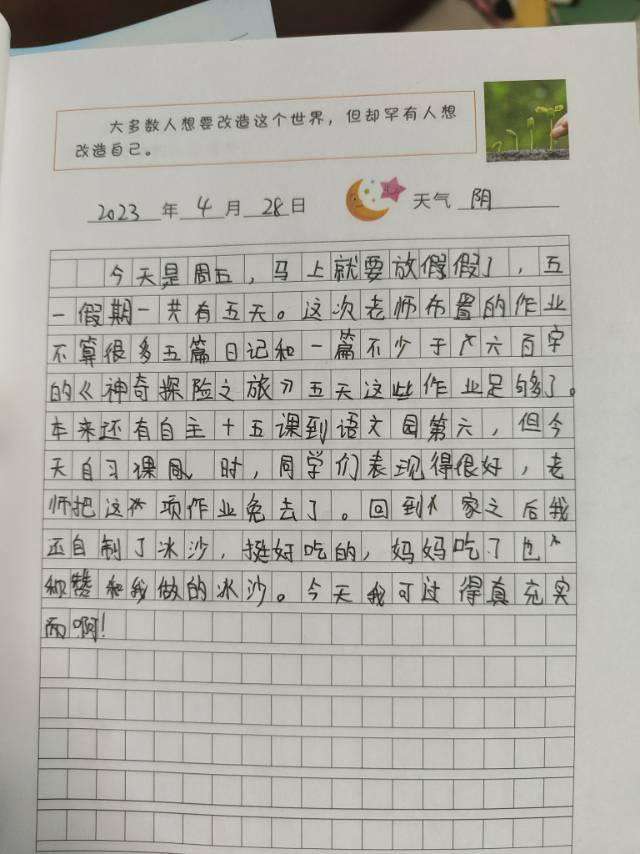 大多数人想要改造这个世界，但却罕有人想
改造自己。
2023年4月28日 天气 阴
今天是周五，马上就要放假假了，五
一假期一共有五天。这次老师布置的作业
不算很多五篇日记和一篇不少于六百字
的《神奇探险之旅》五天这些作业足够了。
本来还有自主十五课到语文园第六，但今
天自习课时，同学们表现得很好，老
师把这项作业免去了。回到家之后我
还自制了冰沙，挺好吃的，妈妈吃了也
称赞和我做的冰沙。今天我可过得真充实
而啊！